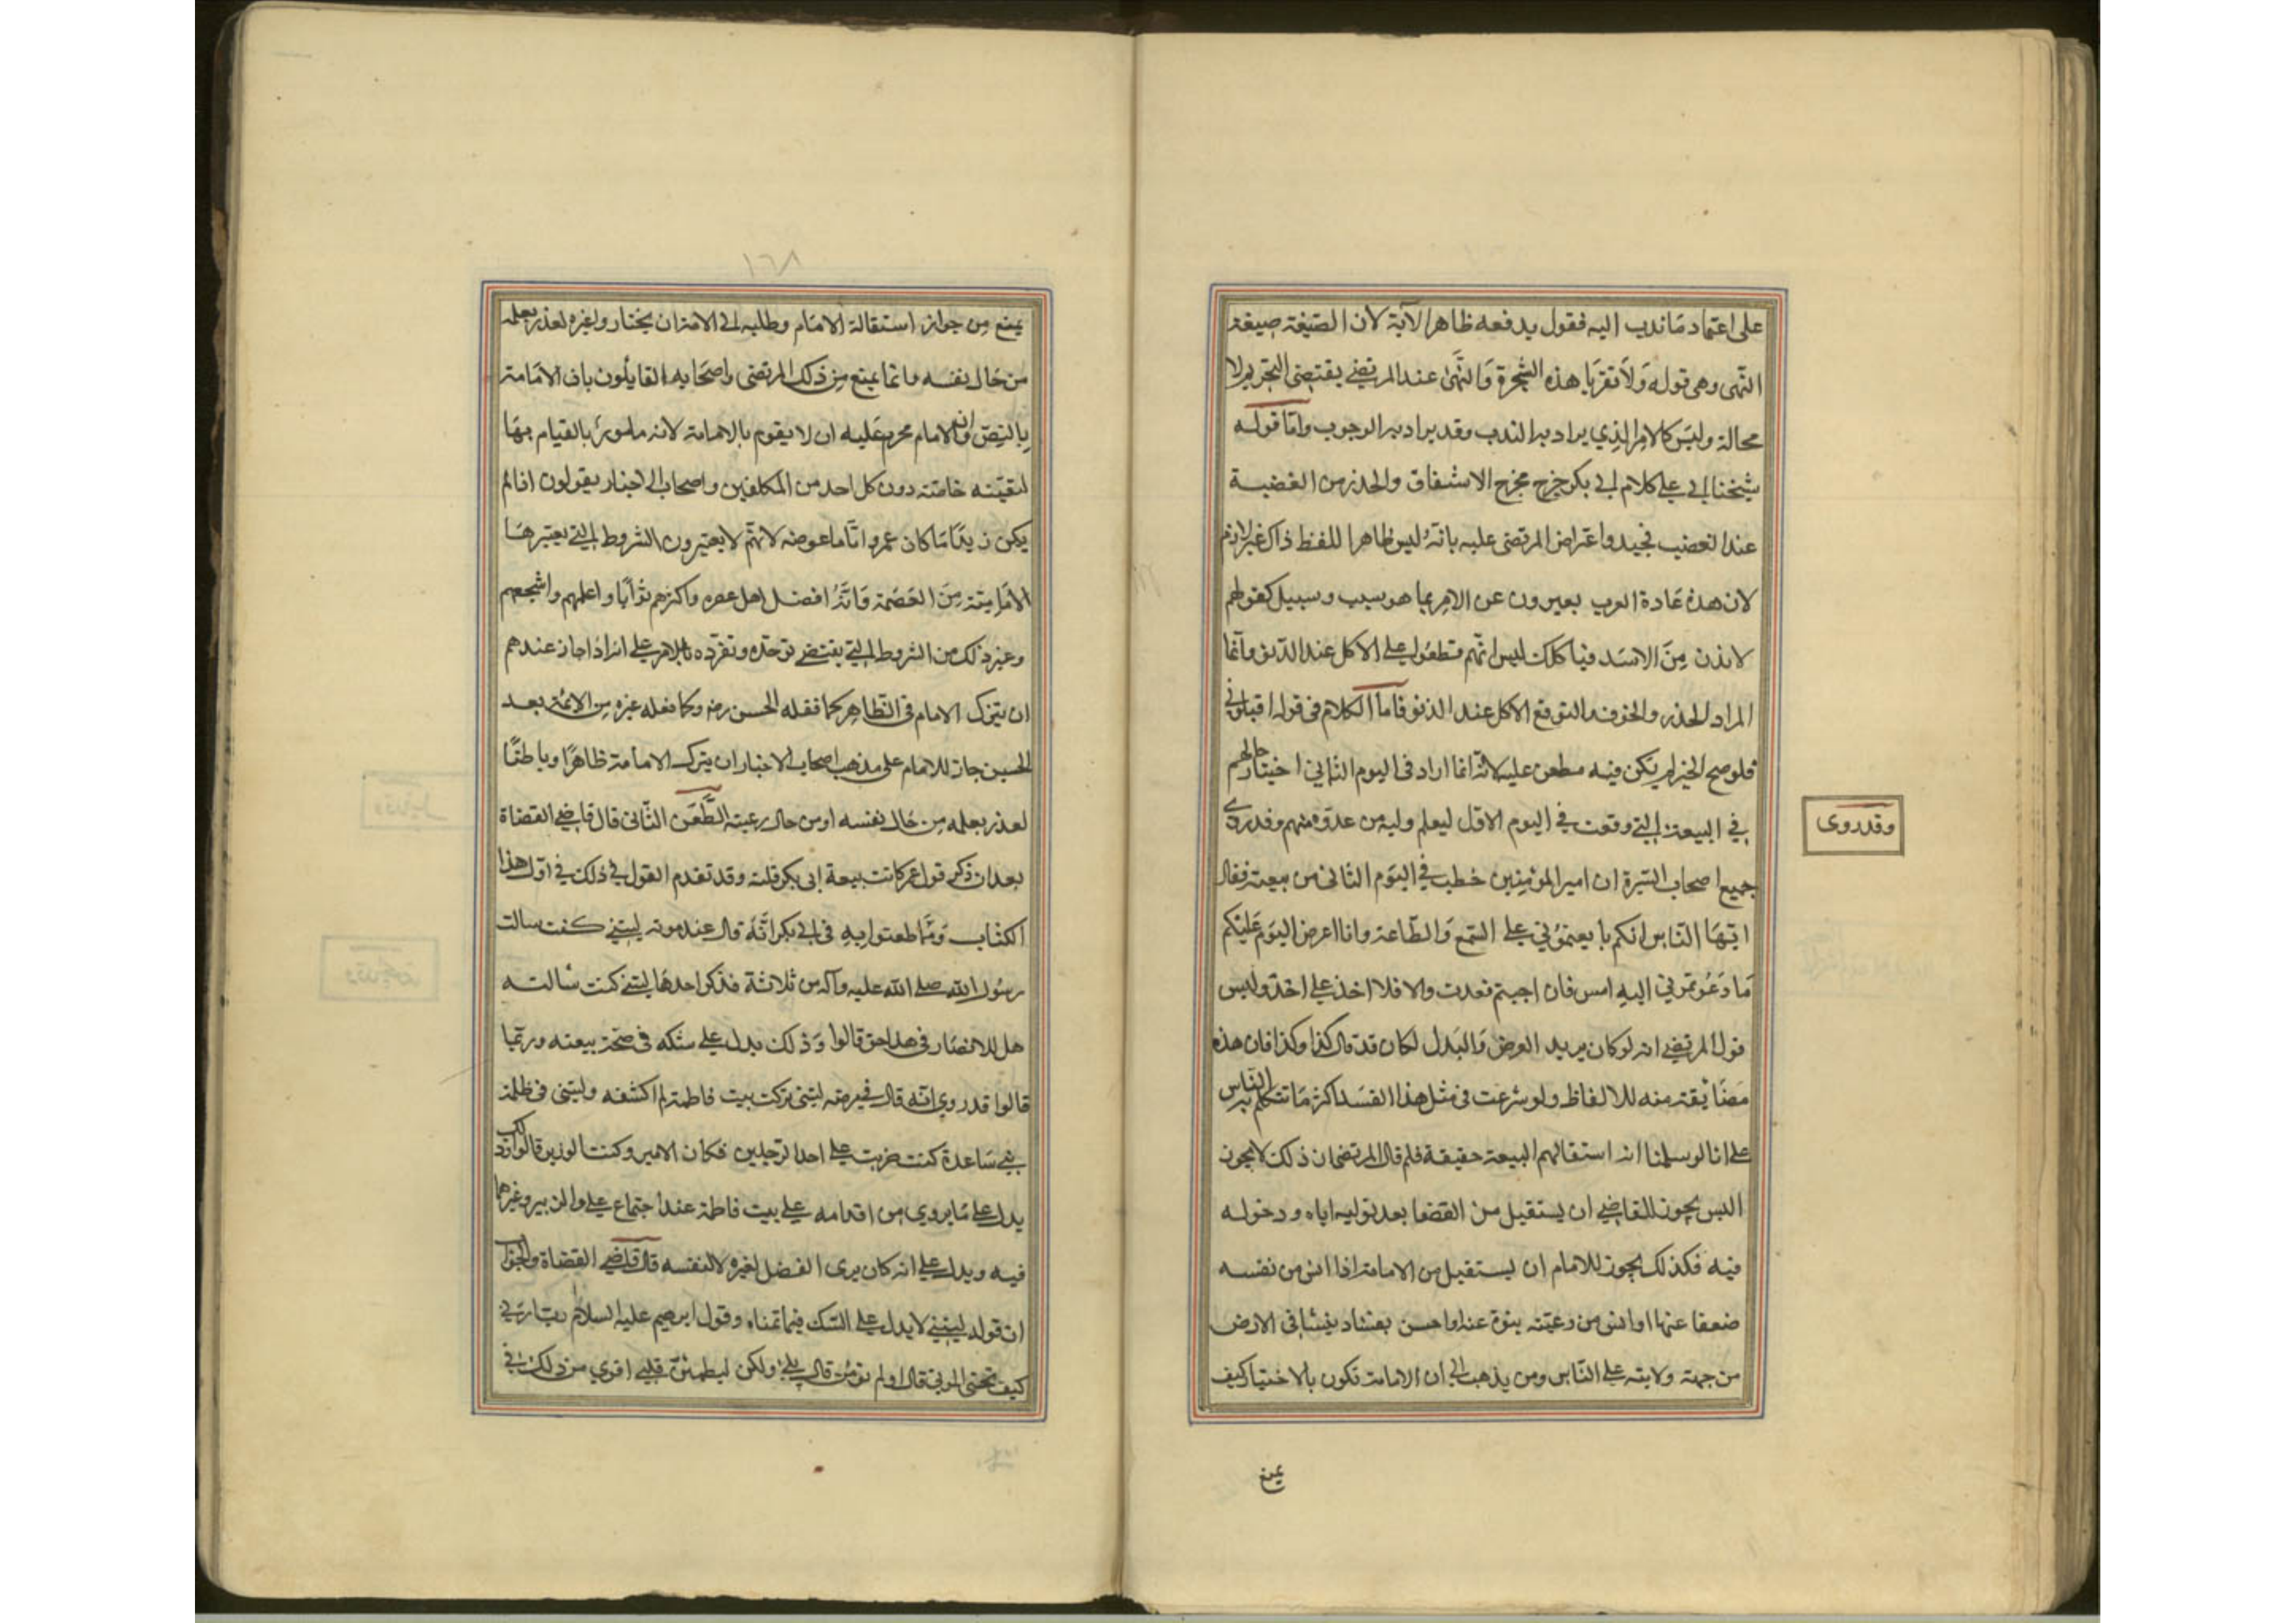 على اعتماد ما ندب اليه فقول يدفعه ظاهر الآية لان الصيغة صيغة
النهى وهى قوله وَلاَ تقرَبا هذه الشجرة وَالنهى عند المرتضى يقتضى التحريم لا
محالة وليس كالامر الذي يراد به الندب وقد يراد به الوجوب وامّا قوله
شيخنا ابي علي كلام ابي بكر خرج مخرج الاشفاق والحذر من الغضبة
عند الغضب فجيد واعتراض المرتضى عليه بانه ليس ظاهر اللفظ ذاك غير لازم
لان هذه عادة العرب يعبرون عن الامر بما هو سبب وسبيل كقولهم
لا تدن مِنَ الاسَد فياكلك ليس انهم قطعوا على الاكل عند الدنو وانما
المراد الحذر والخوف والتوقع للاكل عند الدنو فاما الكلام في قوله اقيلوني
فلو صح الخبر لم يكن فيه مطعن عليه لانه انما اراد فى اليوم الثاني اختبار حالهم
في البيعة التي وقعت في اليوم الاول ليعلم وليه من عدوه منهم وقد روى
وقد روى
جميع اصحاب السيرة ان امير المؤمنين خطب في اليوم الثانى من بيعته فقال
ايها الناس انكم بايعتموني على السمع وَالطّاعة وانا اعرض اليوم عَليكم
مَا دَعَوتموني اليهِ امس فان اجبتم قعدت والا فلا اخذ على احد وليس
قول المرتضى انه لو كان يريد العرض وَالبَدل لكان قد قال كذا وكذا فان هذه
مضَايقة منه للالفاظ ولو شرعت فى مثل هذا الفسد اكثر مَا تتكلم به الناس
على انا لو سلمنا انه استقالهم البيعة حقيقة فلم قال المرتضى ان ذلك لا يجوز
اليس يجوز للقاضي ان يستقيل من القضا بعد توليه اياه ودخوله
فيه فكذلك يجوز للامام ان يستقيل من الامامة اذا انس من نفسه
ضعفا عنها او انس من رعيته نبوة عنه او احس بفساد ينشا فى الارض
من جهة ولايته على النّاس ومن يذهب الى ان الامامة تكون بالاختيار كيف
يمنع
١٦٨
يمنع مِن جواز استقالة الامام وطلبه الى الامة ان يختاروا غيره لعذر يعلمه
من حَال نفسه وانما يمنع مِن ذلك المرتضى واصحَابه القايلون بان الامَامة
بالنصّ وان الامام محرم عَليه ان لا يقوم بالامامة لانه مامور بالقيام بهَا
لتعينه خاصّة دون كل احد من المكلفين واصحاب الاختيار يقولون اذا لم
يكن زيد امَاما كان عمرو امَاما عوضه لانهم لا يعتبرون الشروط التي يعتبرهَا
الامَامية مِنَ العصَمة وَانه افضل اهل عصره واكثرهم ثوَابا واعلمهم واشجعهم
وغير ذلك من الشروط التي يقتضي توحده وتفرده بالامر على انه اذا جاز عندهم
ان يترك الامام فى الظاهر كما فعله الحسن رضه وكما فعله غيره مِن الائمة بعد
الحسين جاز للامام على مذهب اصحاب الاختيار ان يترك الامامة ظاهرًا وباطنًا
لعذر يعلمه من حَال نفسه او من حال رعيته الطَّعن الثّانى قال قاضي القضاة
بعد ان ذكر قول عمر كانت بيعة ابى بكر فلته وقد تقدم القول في ذلك في اول هذا
الكتاب وَممّا طعنوا به في ابي بكر انّه قال عند موته ليتني كنت سالت
رسُول الله صلى الله عليه وآله من ثلاثة فذكر احدهَا ليتني كنت سْالته
هل للانصَار فى هذا حق قالوا وَذلك يدل على شكه فى صحّة بيعته وربّما
قالوا قد روي انّه قال في مرضه ليتنى تركت بيت فاطمة لم اكشفه وليتنى فى ظلة
بني سَاعدة كنت ضربت على احد الرجلين فكان الامير وكنت الوزير قالوا وذلك
يدل على مَا يروي من اقدامه على بيت فاطمة عند اجتماع علي والزبير وغيرهما
فيه ويدل على انه كان يرى الفضل لغيره لا لنفسه قال قاضي القضاة والجواب
ان قوله ليتني لا يدل على الشك فيما تمناه وقول ابرهيم عليه السلام رب ارني
كيف تحيى الموتى قال اولم تؤمن قال بلى ولكن ليطمئن قلبي اقوي من ذلك في